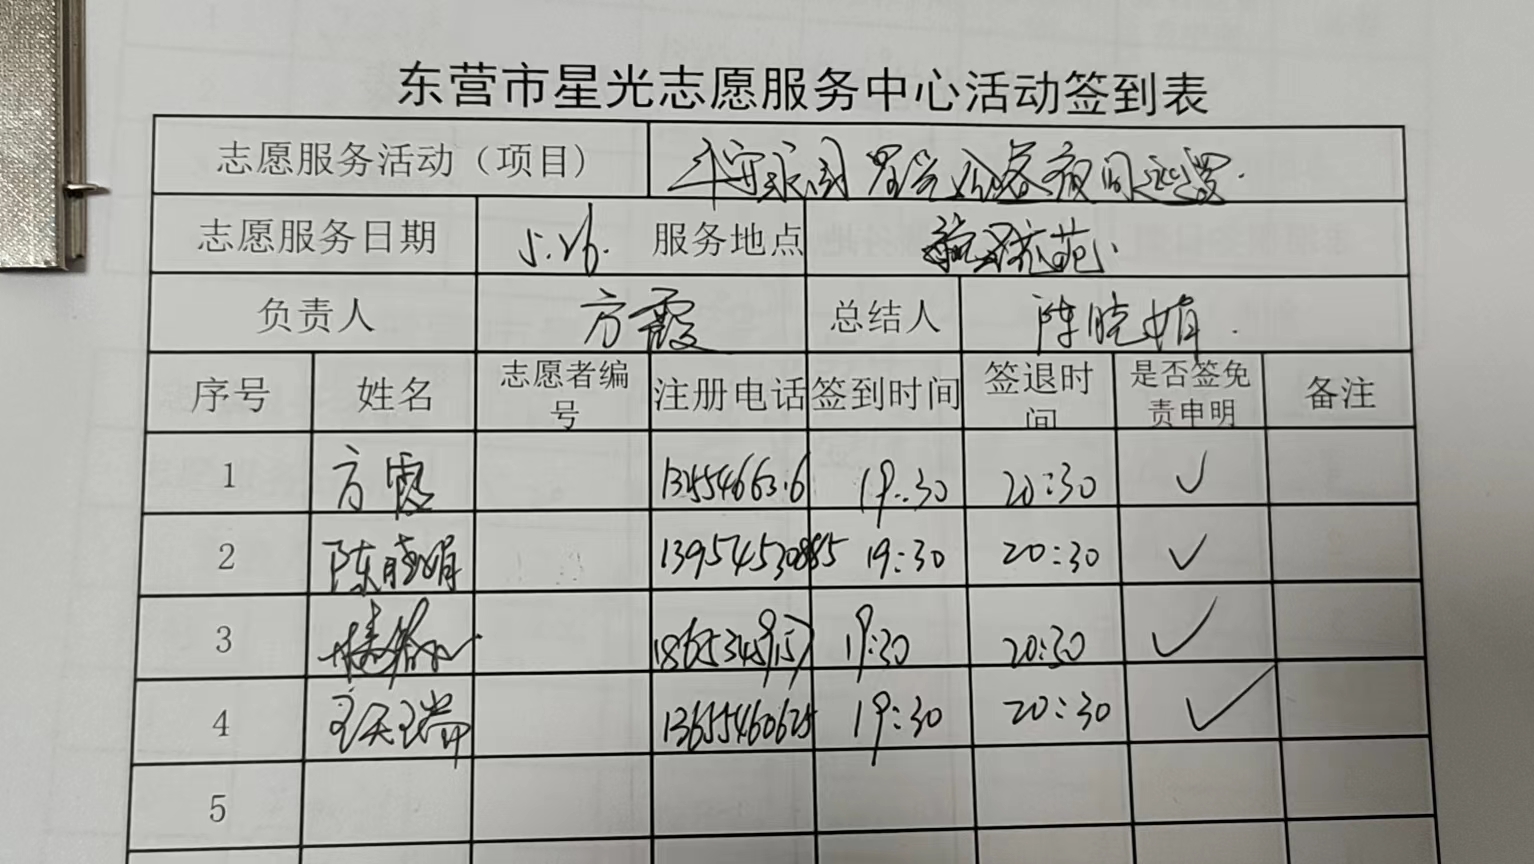 东营市星光志愿服务中心活动签到表
志愿服务活动（项目） 平安永同星光公益夜间巡逻.
志愿服务日期 5.26. 服务地点
负责人 方霞 总结人 陈晓娟.
序号 姓名 志愿者编号 注册电话 签到时间 签退时间 是否签免责申明 备注
1 方霞 19:30 20:30 ✓
2 陈晓娟 19:30 20:30 ✓
3 19:30 20:30 ✓
4 王天瑞 13655460625 19:30 20:30 ✓
5